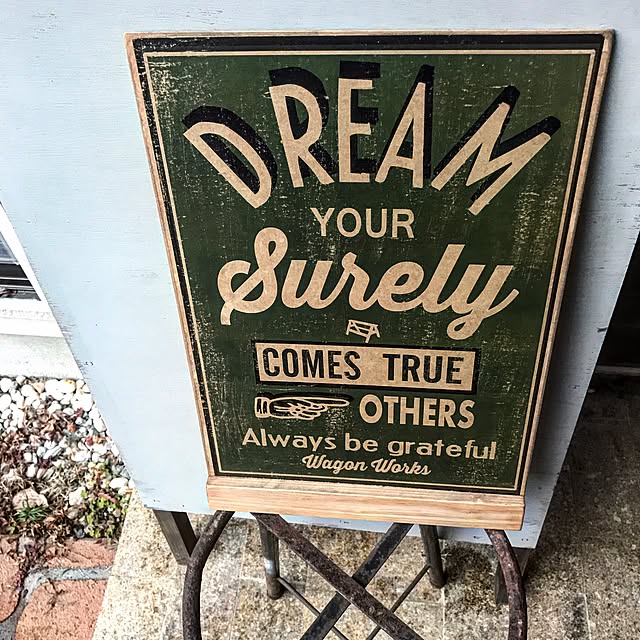 DREAM
YOUR
Surely
COMES TRUE
OTHERS
Always be grateful
Wagon Works